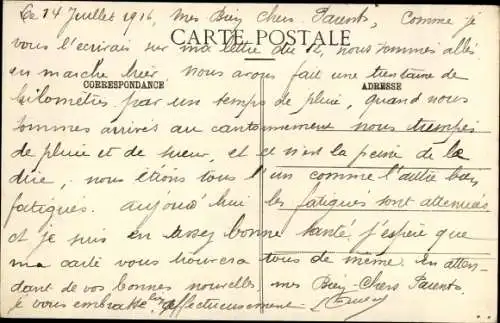 Ce 14 Juillet 1916, Mes Bien Chers Parents, Comme je
CARTE POSTALE
vous l'écrivais sur ma lettre du 12, nous sommes allés
en marche hier nous avons fait une trentaine de
CORRESPONDANCE
ADRESSE
kilomètres par un temps de pluie, quand nous
sommes arrivés au cantonnement nous trempés
de pluie et de sueur, et ce n'est la peine de le
dire, nous étions tous l'un comme l'autre bien
fatigués. aujourd'hui les fatigues sont atténuées
et je suis en assez bonne santé, j'espère que
ma carte vous trouvera tous de même. en atten-
dant de vos bonnes nouvelles, mes Bien Chers Parents
je vous embrasse bien affectueusement